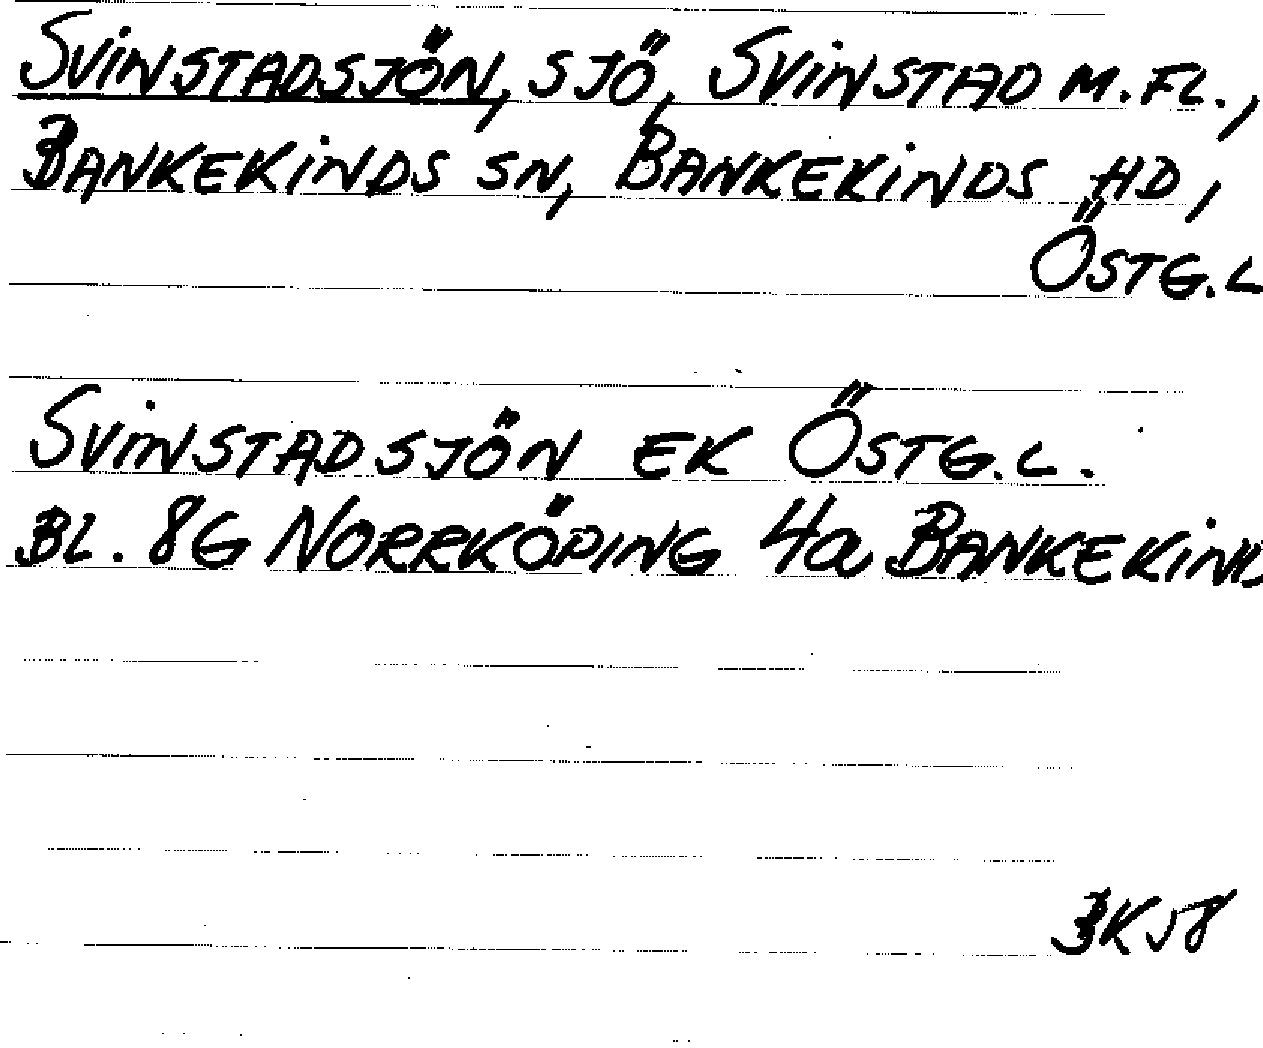 SVINSTADSJÖN, SJÖ, SVINSTAD M.FL.,
BANKEKINDS SN, BANKEKINDS HD,
ÖSTG.L
SVINSTADSJÖN EK ÖSTG.L.
BL. 8G NORRKÖPING 4a BANKEKIND
BK58